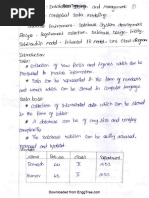 Database Design and Management ①
Conceptual Data modelling
Database Environment - Database System development
Design - Requirement collection - Database Design - Entity
Relationship model - Enhanced ER model - UML class diagram
Introduction
Data
* Collection of raw facts and figures which can be
processed to produce information.
* Data can be represented in the form of numbers
and words which can be stored in computer's language
Data base
* Collection of information organized in the form of
tables.
* A database can be of any size and complexity.
* The database creation can be easily accessed,
managed and updated.
Name
Roll.no
Class
Department
44
II
45
II
Downloaded from EnggTree.com